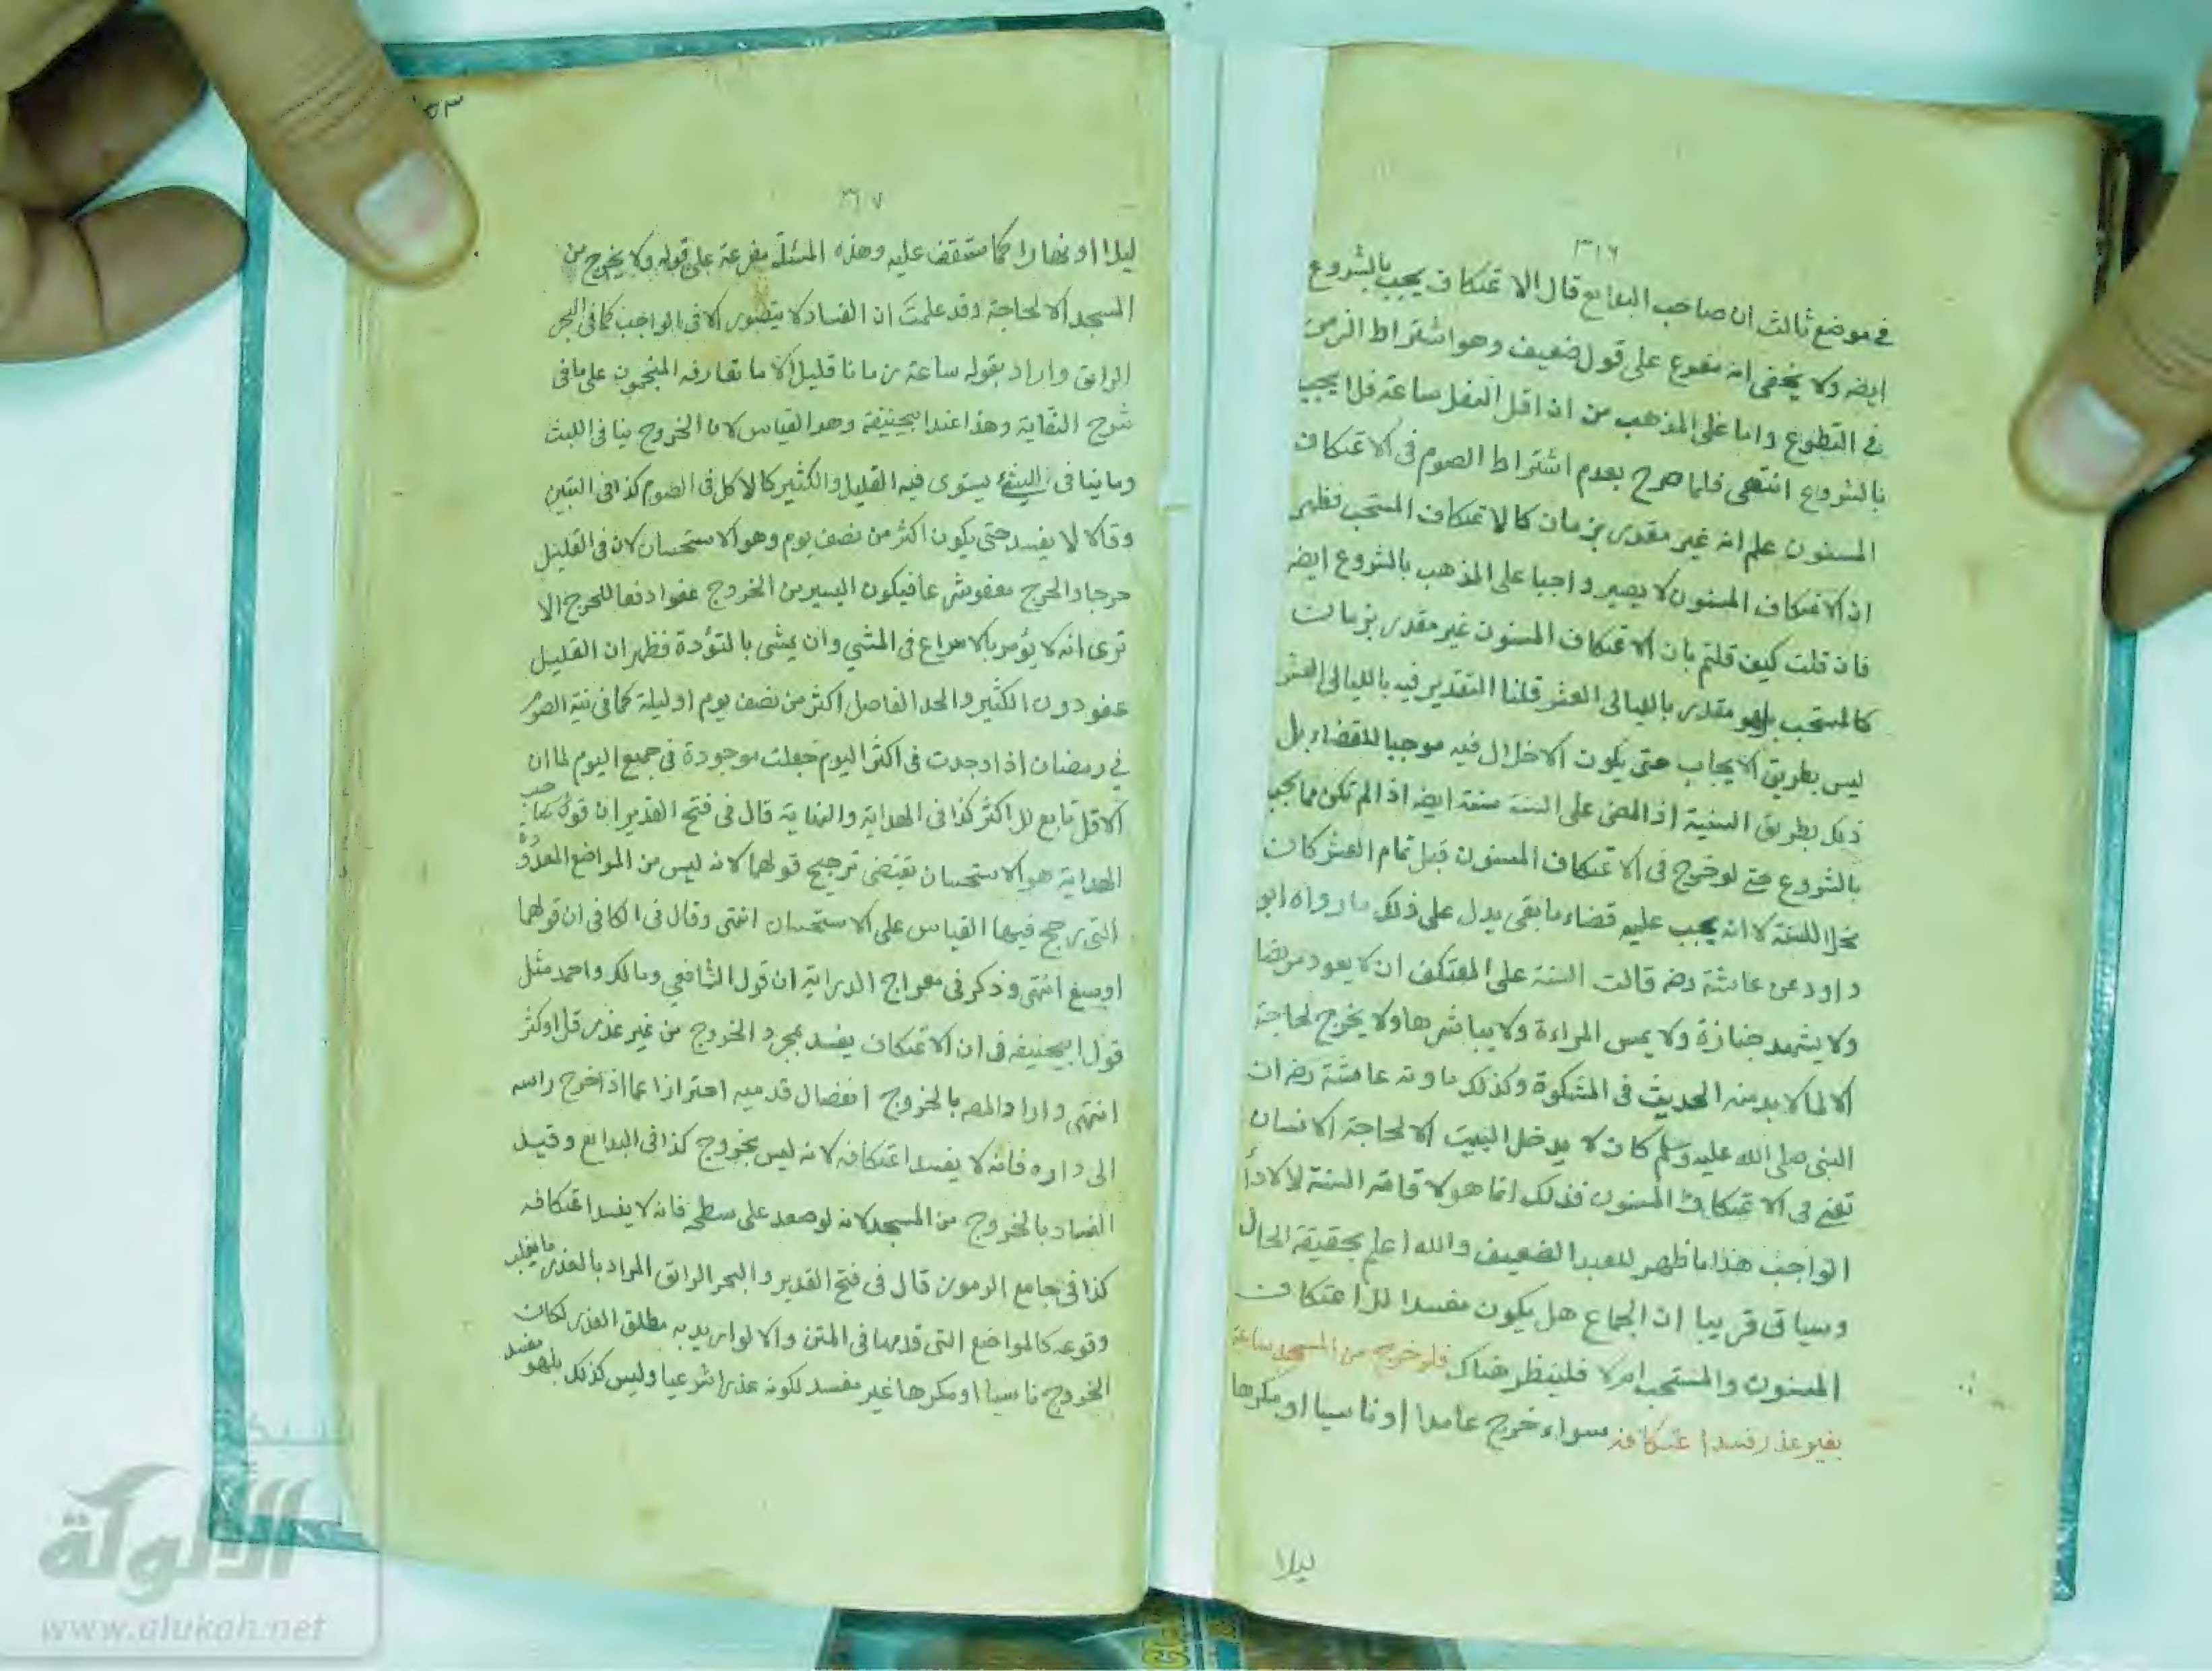 ٣١٦
في موضع ثالث ان صاحب البدايع قال الاعتكاف يجب بالشروع
ايضه ولا يخفى انه مفرع على قول ضعيف وهو اشتراط الزمن
في التطوع واما على المذهب من ان اقل النفل ساعة فلا يجب
بالشروع انتهى فلما صرح بعدم اشتراط الصوم في الاعتكاف
المسنون علم انه غير مقدر بزمان كالاعتكاف المستحب فظهر
ان الاعتكاف المسنون لا يصير واجبا على المذهب بالشروع ايضه
فان قلت كيف قلتم بان الاعتكاف المسنون غير مقدر بزمان
كالمستحب بلهو مقدر بالليالى العشر قلنا التقدير فيه بالليالى العشر
ليس بطريق الايجاب حتى يكون الاخلال فيه موجبا للقضاء بل
ذلك بطريق السنية اذ المضى على السنة سنة ايضه اذ الم تكن مما يجب
بالشروع حتى لو خرج في الاعتكاف المسنون قبل تمام العشر كان
مخلا للسنة لا انه يجب عليه قضاء ما بقى يدل على ذلك ما رواه ابو
داود عن عائشة رضه قالت السنة على المعتكف ان لا يعود مريضا
ولا يشهد جنازة ولا يمس المراءة ولا يباشرها ولا يخرج لحاجة
الا لما لا بد منه الحديث في المشكوة وكذلك ما روته عائشة رضه ان
النبى صلى الله عليه وسلم كان لا يدخل البيت الا لحاجة الانسان
تعنى في الاعتكاف المسنون فذلك انما هو لاقامة السنة لا لاداء
الواجب هذا ما ظهر للعبد الضعيف والله اعلم بحقيقة الحال
وسياتى قريبا ان الجماع هل يكون مفسدا للاعتكاف
المسنون والمستحب ام لا فلينظر هناك فلو خرج من المسجد ساعة
بغير عذر فسد اعتكافه سواء خرج عامدا او ناسيا او مكرها
ليلا
٣١٧
ليلا او نهارا كما ستقف عليه وهذه المسئلة مفرعة على قوله ولا يخرج من
المسجد الا لحاجة وقد علمت ان الفساد لا يتصور الا في الواجب كما في البحر
الرائق واراد بقوله ساعة زمانا قليلا لا ما تعارفه المنجمون على ما في
شرح النقاية وهذا عند ابيحنيفة وهو القياس لان الخروج ينافى اللبث
وما ينافى الشئ يستوى فيه القليل والكثير كالاكل في الصوم كذا في التبيين
وقالا لا يفسد حتى يكون اكثر من نصف يوم وهو الاستحسان لان في القليل
حرجا والحرج معفو شرعا فيكون اليسير من الخروج عفوا دفعا للحرج الا
ترى انه لا يؤمر بالاسراع في المشي وان يمشى بالتؤدة فظهر ان القليل
عفو دون الكثير والحد الفاصل اكثر من نصف يوم او ليلة كما في نية الصوم
في رمضان اذا وجدت في اكثر اليوم جعلت موجودة في جميع اليوم لما ان
الاقل تابع للاكثر كذا في الهداية والنهاية قال في فتح القدير ان قول صاحب
الهداية هو الاستحسان يقتضى ترجيح قولهما لانه ليس من المواضع المعدودة
التى رجح فيها القياس على الاستحسان انتهى وقال في الكافى ان قولهما
اوسع انتهى وذكر في معراج الدراية ان قول الشافعي ومالك واحمد مثل
قول ابيحنيفه في ان الاعتكاف يفسد بمجرد الخروج من غير عذر قل او كثر
انتهى واراد المصه بالخروج انفصال قدميه احترازا عما اذا خرج راسه
الى داره فانه لا يفسد اعتكافه لانه ليس بخروج كذا في البدايع وقيد
الفساد بالخروج من المسجد لانه لو صعد على سطحه فانه لا يفسد اعتكافه
كذا في جامع الرموز قال في فتح القدير والبحر الرائق المراد بالعذر ما يغلب
وقوعه كالمواضع التى قدمها في المتن والا لو اريد به مطلق العذر لكان
الخروج ناسيا او مكرها غير مفسد لكونه عذرا شرعيا وليس كذلك بلهو مفسد
شبكة
الألوكة
www.alukah.net